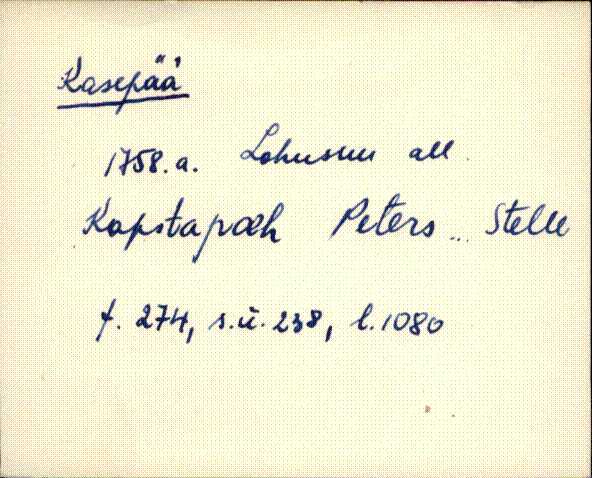 Kasepää
1758.a. Lohusuu all
Kapstapæh Peters... Stelle
f. 274, s.ü. 238, l. 1080